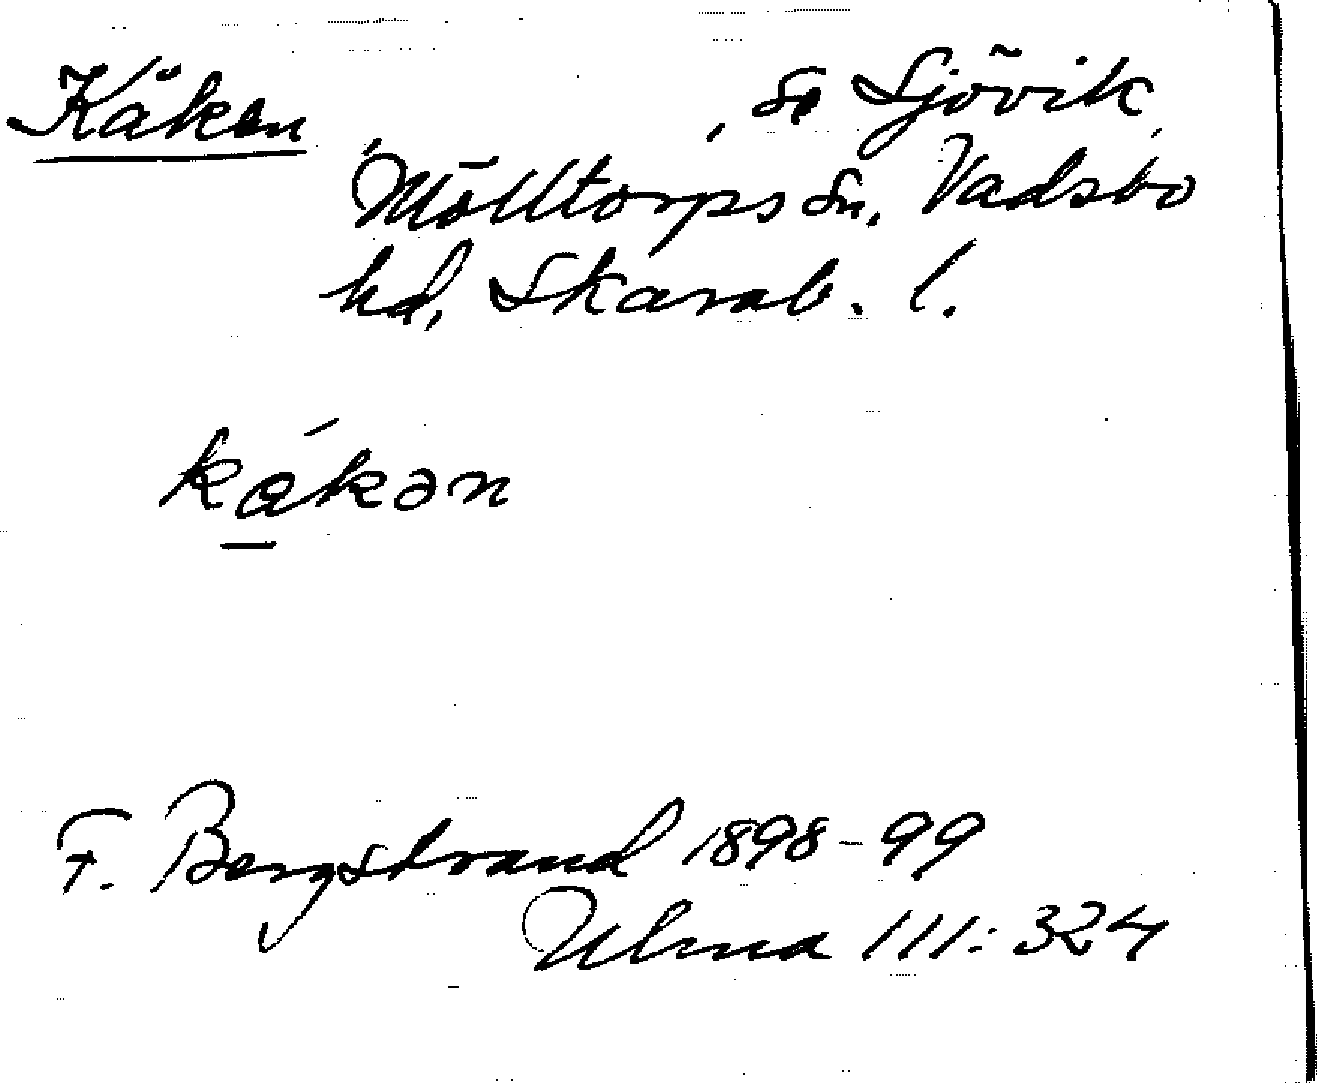 Käken, se Sjövik,
Mölltorps sn, Vadsbo
hd, Skarab. l.
kǻkən
F. Bergstrand 1898-99
Ulma 111:324